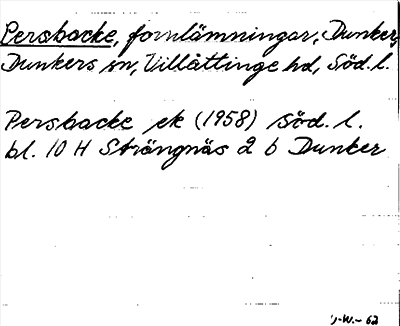 Persbacke, fornlämningar, Dunker,
Dunkers sn, Villåttinge hd, Söd. l.
Persbacke ek (1958) Söd. l.
bl. 10 H Strängnäs 2 b Dunker
J-W.- 62